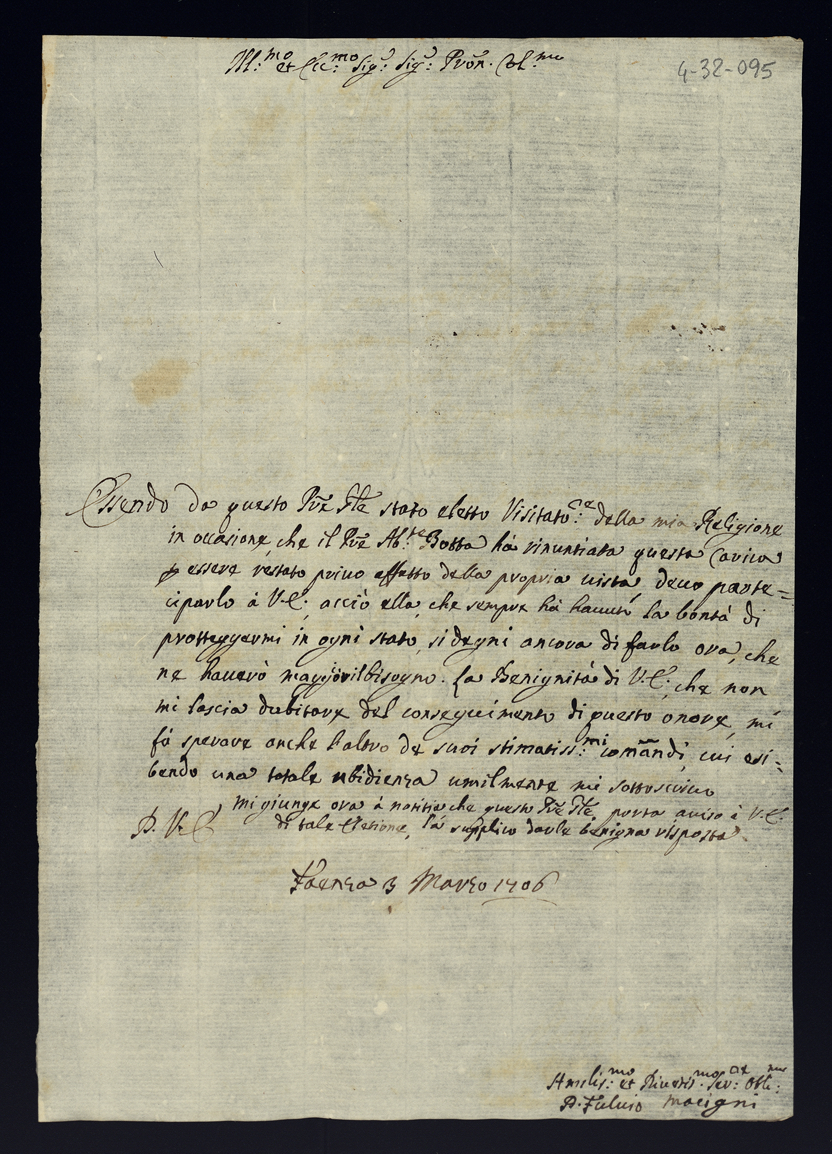 Ill:mo et Ecc:mo Sig: Sig: Pron. Col:mo
4-32-095
Essendo da questo Pre Gle stato eletto Visitato:re della mia Religione
in occasione che il Pre Ab:te Botta hà rinuntiata questa Carica
p essere restato privo affatto della propria vista, devo parte=
ciparlo à V.E., acciò ella, che sempre hà havuto la bontà di
protteggermi in ogni stato, si degni ancora di farlo ora, che
ne haverò maggior il bisogno. La Benignità di V.E., che non
mi lascia dubitare del conseguimento di questo onore, mi
fà sperare anche l'altro de suoi stimatiss:mi comandi, cui esi=
bendo una totale ubidienza umilmente mi sottoscrivo
Mi giunge ora à notitia che questo Pre Gle porta aviso à V.E.
D. V.E. di tale Eletione, la supplico darle benigna risposta
Faenza 3 Marzo 1706
Humilis:mo et Rives:mo Ser:re Obli:mo
D. Fulvio Macigni